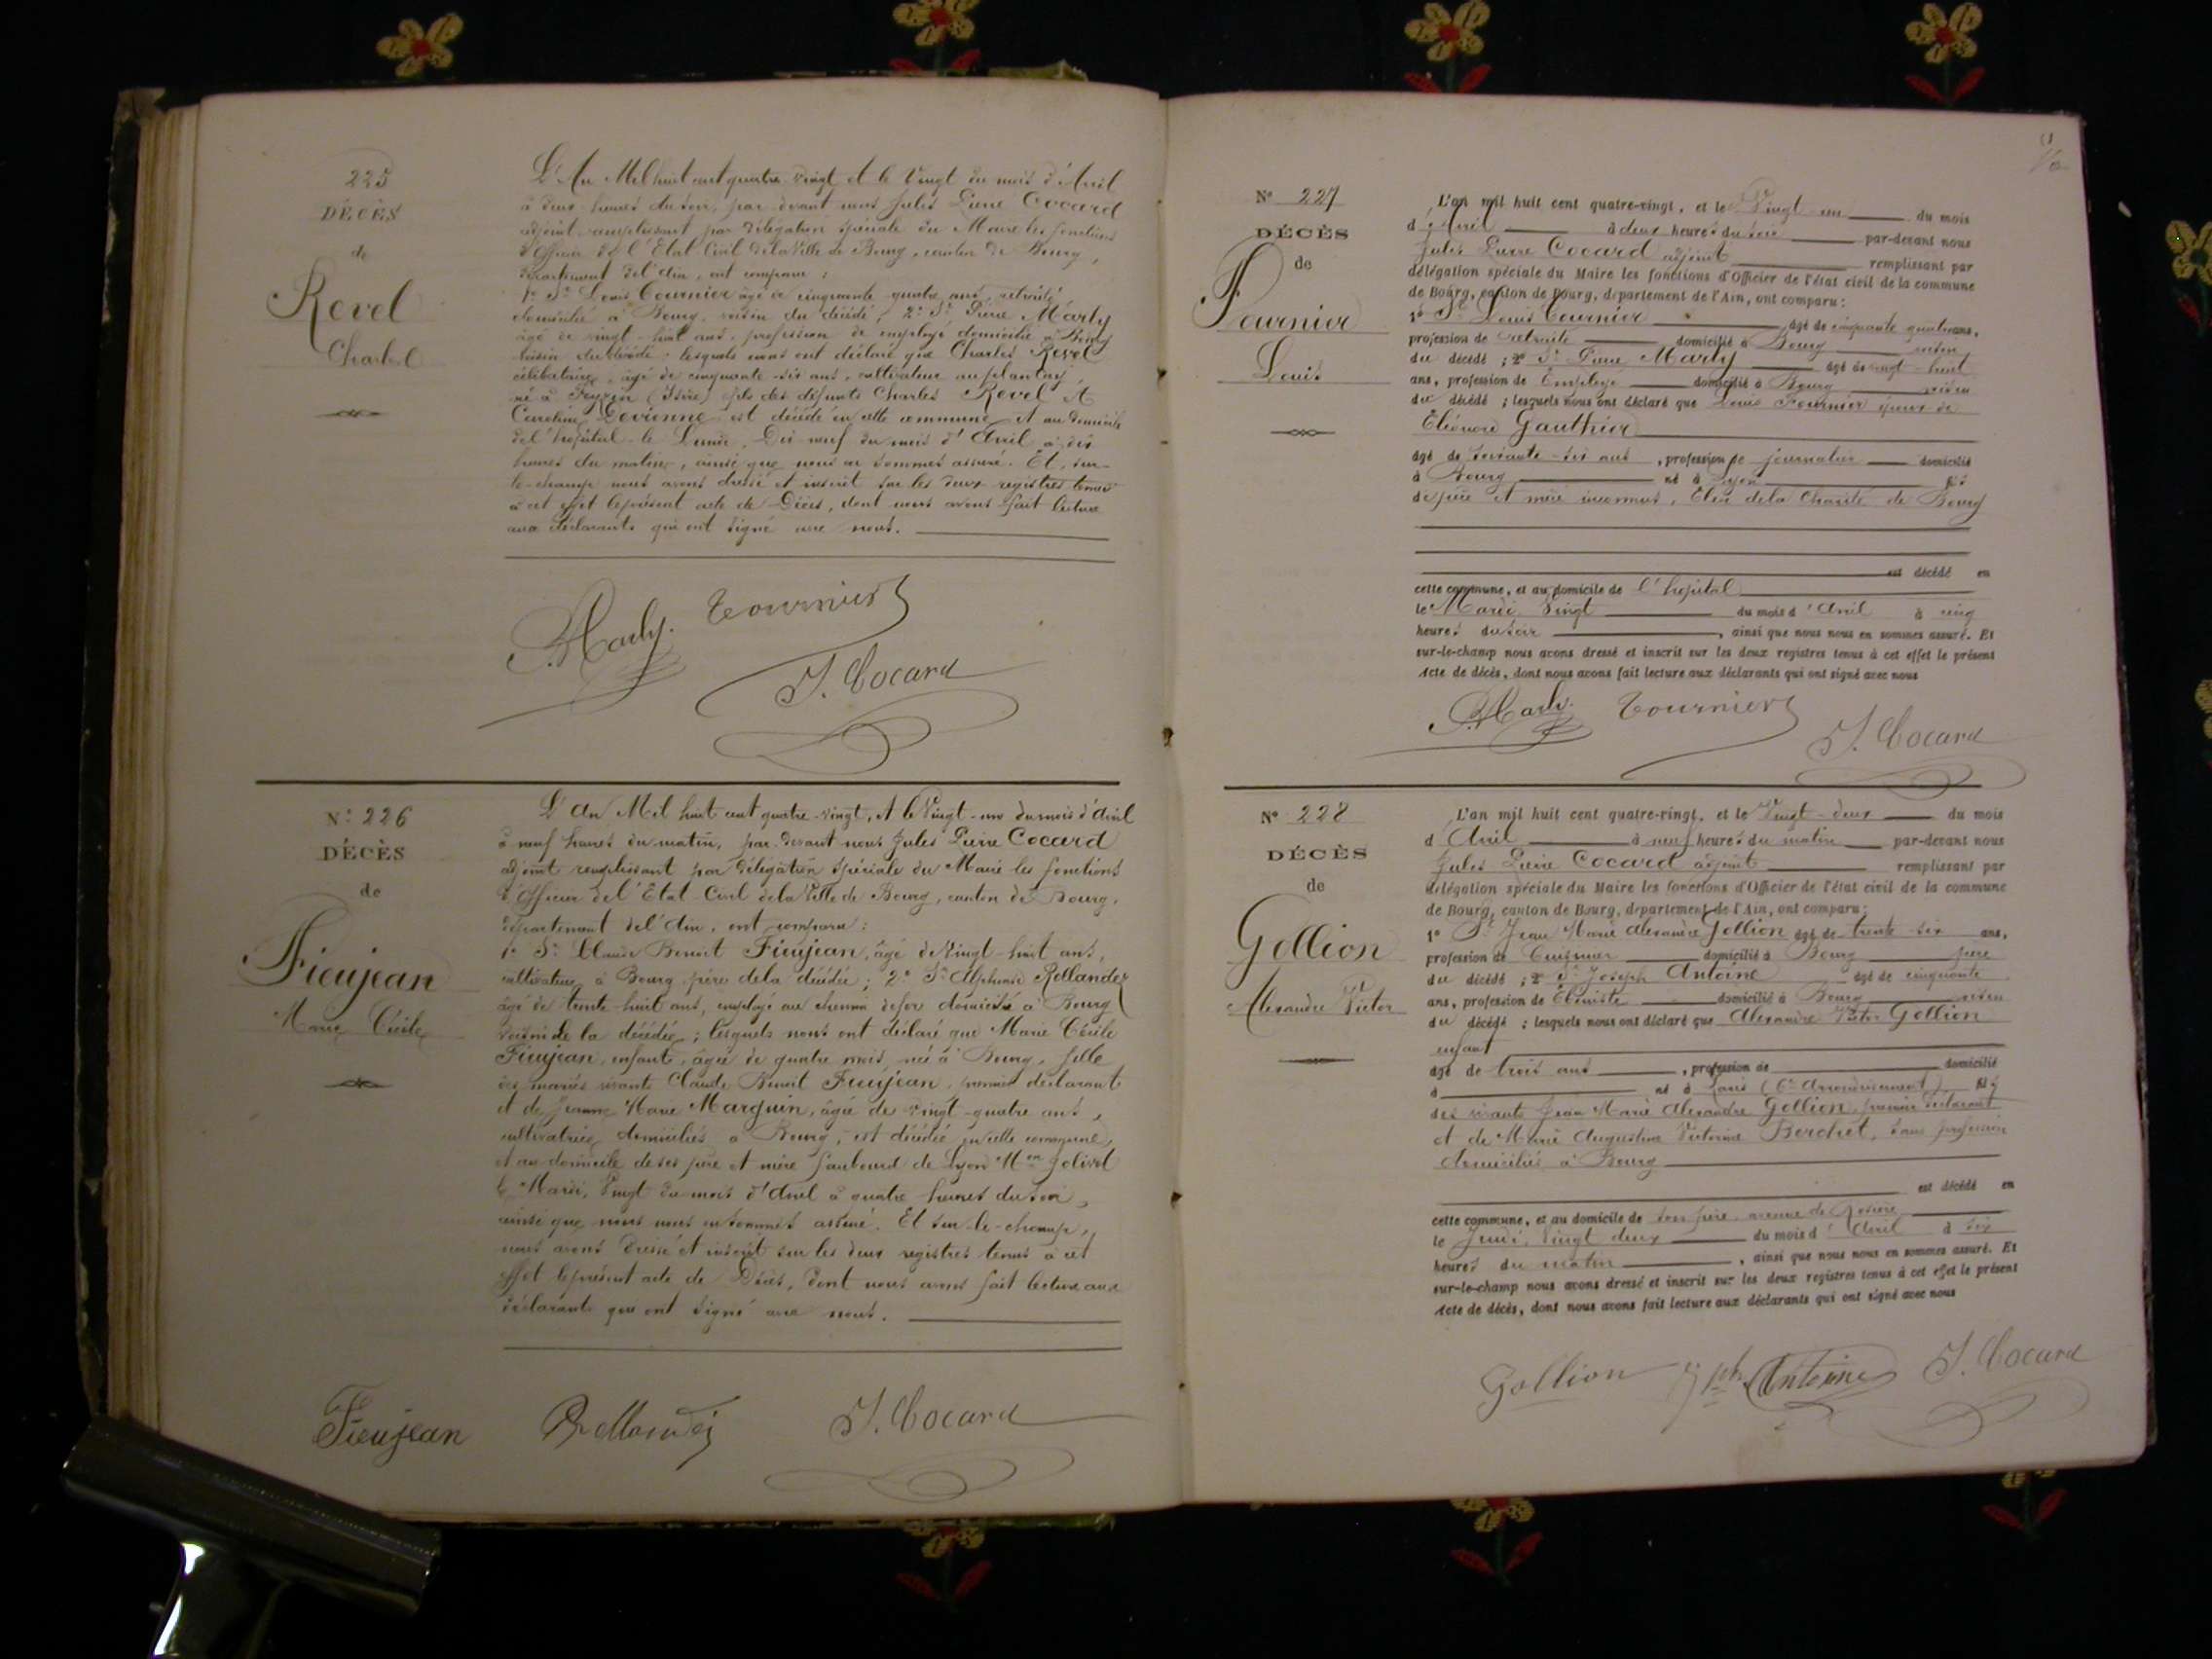 225
DÉCÈS
de
Revel
Charles
L'An Mil huit cent quatre-vingt et le Vingt du mois d'Avril
à deux heures du soir, par devant nous Jules Pierre Cocard
adjoint remplissant par délégation spéciale du Maire les fonctions
d'Officier de l'Etat Civil de la Ville de Bourg, canton de Bourg,
département de l'Ain, ont comparu :
1° Sr Louis Tournier âgé de cinquante-quatre ans, retraité
domicilié à Bourg, voisin du décédé, 2° Sr Pierre Marly
âgé de vingt-huit ans, profession de employé domicilié à Bourg
voisin du décédé ; lesquels nous ont déclaré que Charles Revel
célibataire, âgé de cinquante-six ans, cultivateur au plantay,
né à Feyzin (Isère) fils des défunts Charles Revel et
Caroline Devienne est décédé en cette commune, et au domicile
de l'hopital le Lundi, Dix neuf du mois d'Avril à dix
heures du matin, ainsi que nous en sommes assuré. Et, sur-
le-champ nous avons dressé et inscrit sur les deux registres tenus
à cet effet le présent acte de Décès, dont nous avons fait lecture
aux déclarants qui ont signé avec nous.
Marly. Tournier
J. Cocard
N° 226
DÉCÈS
de
Fieujean
Marie Cécile
L'An Mil huit cent quatre-vingt, et le Vingt-un du mois d'Avril
à neuf heures du matin, par devant nous Jules Pierre Cocard
adjoint remplissant par délégation spéciale du Maire les fonctions
d'Officier de l'Etat Civil de la Ville de Bourg, canton de Bourg,
département de l'Ain, ont comparu :
1° Sr Claude Benoit Fieujean, âgé de vingt-huit ans,
cultivateur à Bourg père de la décédée ; 2° Sr Alphonse Rollandez
âgé de trente huit ans, employé au chemin de fer domicilié à Bourg
voisin de la décédée ; lesquels nous ont déclaré que Marie Cécile
Fieujean, enfant, âgée de quatre mois, née à Bourg, fille
des mariés vivants Claude Benoit Fieujean, premier déclarant
et de Jeanne Marie Marguin, âgée de vingt-quatre ans,
cultivatrice, domiciliés à Bourg, est décédée en cette commune,
et au domicile de ses père et mère faubourg de Lyon Mon Jolivet
le Mardi, Vingt du mois d'Avril à quatre heures du soir,
ainsi que nous nous en sommes assuré. Et sur-le-champ,
nous avons dressé et inscrit sur les deux registres tenus à cet
effet le présent acte de Décès, dont nous avons fait lecture aux
déclarants qui ont signé avec nous.
Fieujean Rollandez J. Cocard
N° 227
DÉCÈS
de
Fournier
Louis
L'an mil huit cent quatre-vingt, et le Vingt un du mois
d'Avril à deux heures du soir par-devant nous
Jules Pierre Cocard adjoint remplissant par
délégation spéciale du Maire les fonctions d'Officier de l'état civil de la commune
de Bourg, canton de Bourg, département de l'Ain, ont comparu :
1° Sr Louis Tournier âgé de cinquante quatre ans,
profession de retraité domicilié à Bourg voisin
du décédé ; 2° Sr Pierre Marly âgé de vingt-huit
ans, profession de Employé domicilié à Bourg voisin
du décédé ; lesquels nous ont déclaré que Louis Fournier époux de
Éléonore Gauthier
âgé de soixante-six ans, profession de journalier domicilié
à Bourg né à Lyon fils
de père et mère inconnus, Elève de la Charité de Bourg
est décédé en
cette commune, et au domicile de l'hopital
le Mardi Vingt du mois d'Avril à cinq
heures du soir, ainsi que nous nous en sommes assuré. Et
sur-le-champ nous avons dressé et inscrit sur les deux registres tenus à cet effet le présent
Acte de décès, dont nous avons fait lecture aux déclarants qui ont signé avec nous
Marly. Tournier
J. Cocard
N° 228
DÉCÈS
de
Gollion
Alexandre Victor
L'an mil huit cent quatre-vingt, et le Vingt-deux du mois
d'Avril à neuf heures du matin par-devant nous
Jules Pierre Cocard adjoint remplissant par
délégation spéciale du Maire les fonctions d'Officier de l'état civil de la commune
de Bourg, canton de Bourg, département de l'Ain, ont comparu :
1° Sr Jean Marie Alexandre Gollion âgé de trente-six ans,
profession de Cuisinier domicilié à Bourg père
du décédé ; 2° Sr Joseph Antoine âgé de cinquante
ans, profession de Ébéniste domicilié à Bourg voisin
du décédé ; lesquels nous ont déclaré que Alexandre Victor Gollion
enfant
âgé de trois ans, profession de domicilié
à né à Paris (6e Arrondissement) fils
des vivants Jean Marie Alexandre Gollion, premier déclarant
et de Marie Augustine Victorine Berchet, sans profession
domiciliés à Bourg
est décédé en
cette commune, et au domicile de son père avenue de
le Jeudi, Vingt deux du mois d'Avril à six
heures du matin, ainsi que nous nous en sommes assuré. Et
sur-le-champ nous avons dressé et inscrit sur les deux registres tenus à cet effet le présent
Acte de décès, dont nous avons fait lecture aux déclarants qui ont signé avec nous
Gollion Jph. Antoine J. Cocard